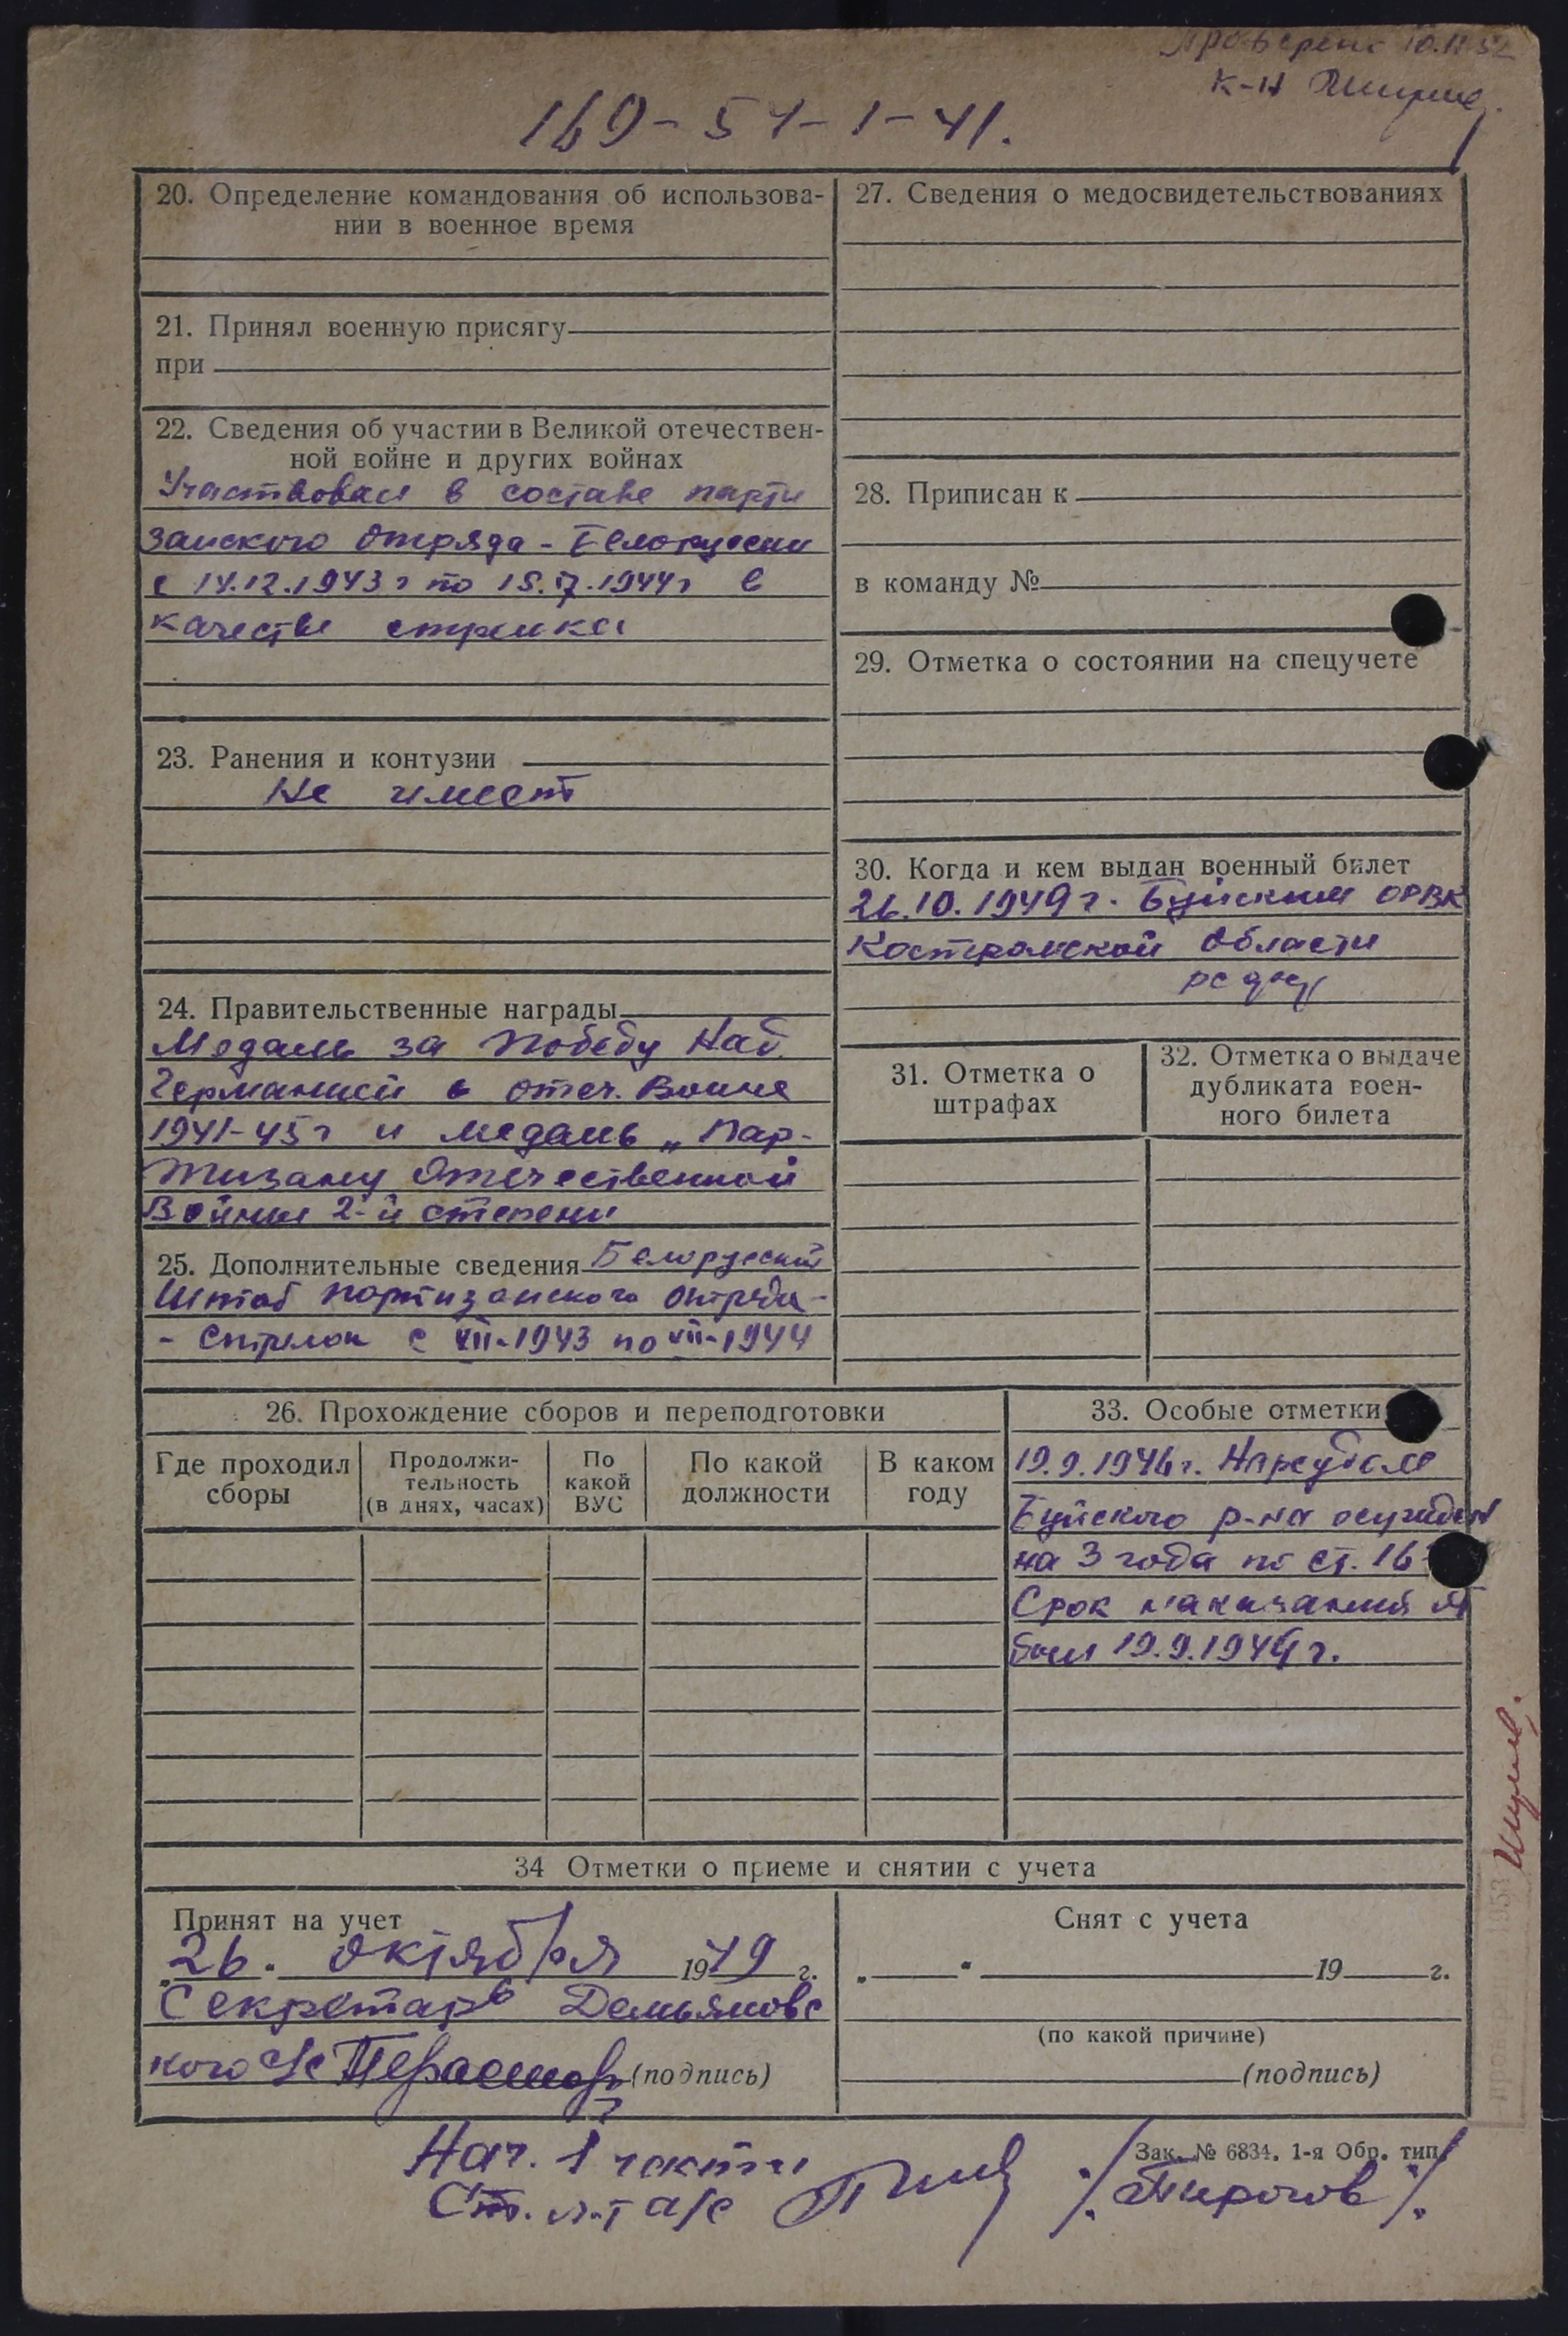 Проверено 10.11.52
к-н
169-54-1-41.
20. Определение командования об использова-
нии в военное время
21. Принял военную присягу
при
22. Сведения об участии в Великой отечествен-
ной войне и других войнах
Участвовал в составе парти
занского отряда - Белоруссии
с 14.12.1943 г по 15.7.1944 г в
качестве стрелка
23. Ранения и контузии
Не имеет
24. Правительственные награды
Медаль за Победу Над
Германией в отеч. Войне
1941-45 г и медаль „Пар-
тизану Отечественной
Войны 2-й степени
25. Дополнительные сведения Белорусский
Штаб партизанского отряда -
- Стрелок с VII-1943 по VII-1944
27. Сведения о медосвидетельствованиях
28. Приписан к
в команду №
29. Отметка о состоянии на спецучете
30. Когда и кем выдан военный билет
26.10.1949 г. Буйским ОРВК
Костромской области
31. Отметка о
штрафах
32. Отметка о выдаче
дубликата воен-
ного билета
26. Прохождение сборов и переподготовки
Где проходил
сборы
Продолжи-
тельность
(в днях, часах)
По
какой
ВУС
По какой
должности
В каком
году
33. Особые отметки
19.9.1946 г. Нарсудом
Буйского р-на осужден
на 3 года по ст. 16
Срок наказания от
был 19.9.1949 г.
34 Отметки о приеме и снятии с учета
Принят на учет
„26." октября 1949 г.
Секретарь Демьяновс
кого с/с (подпись)
Снят с учета
„ " 19 г.
(по какой причине)
(подпись)
Нач. 1 части
Ст. л-т а/с /Пирогов/
Зак. № 6834. 1-я Обр. тип.